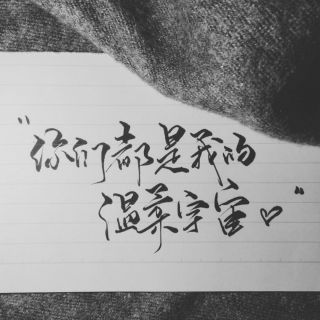 "你们都是我的
温柔宇宙♡"